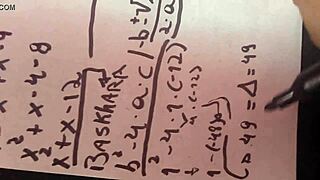 .COM
x² + x - 4 = 8
x + x - 12
BASKHARA
b² - 4 · a · c (-b ± √
2 · a
1² - 4 · 1 · (-12)
-4 · (-12)
1 - (-48)
49 = Δ = 49